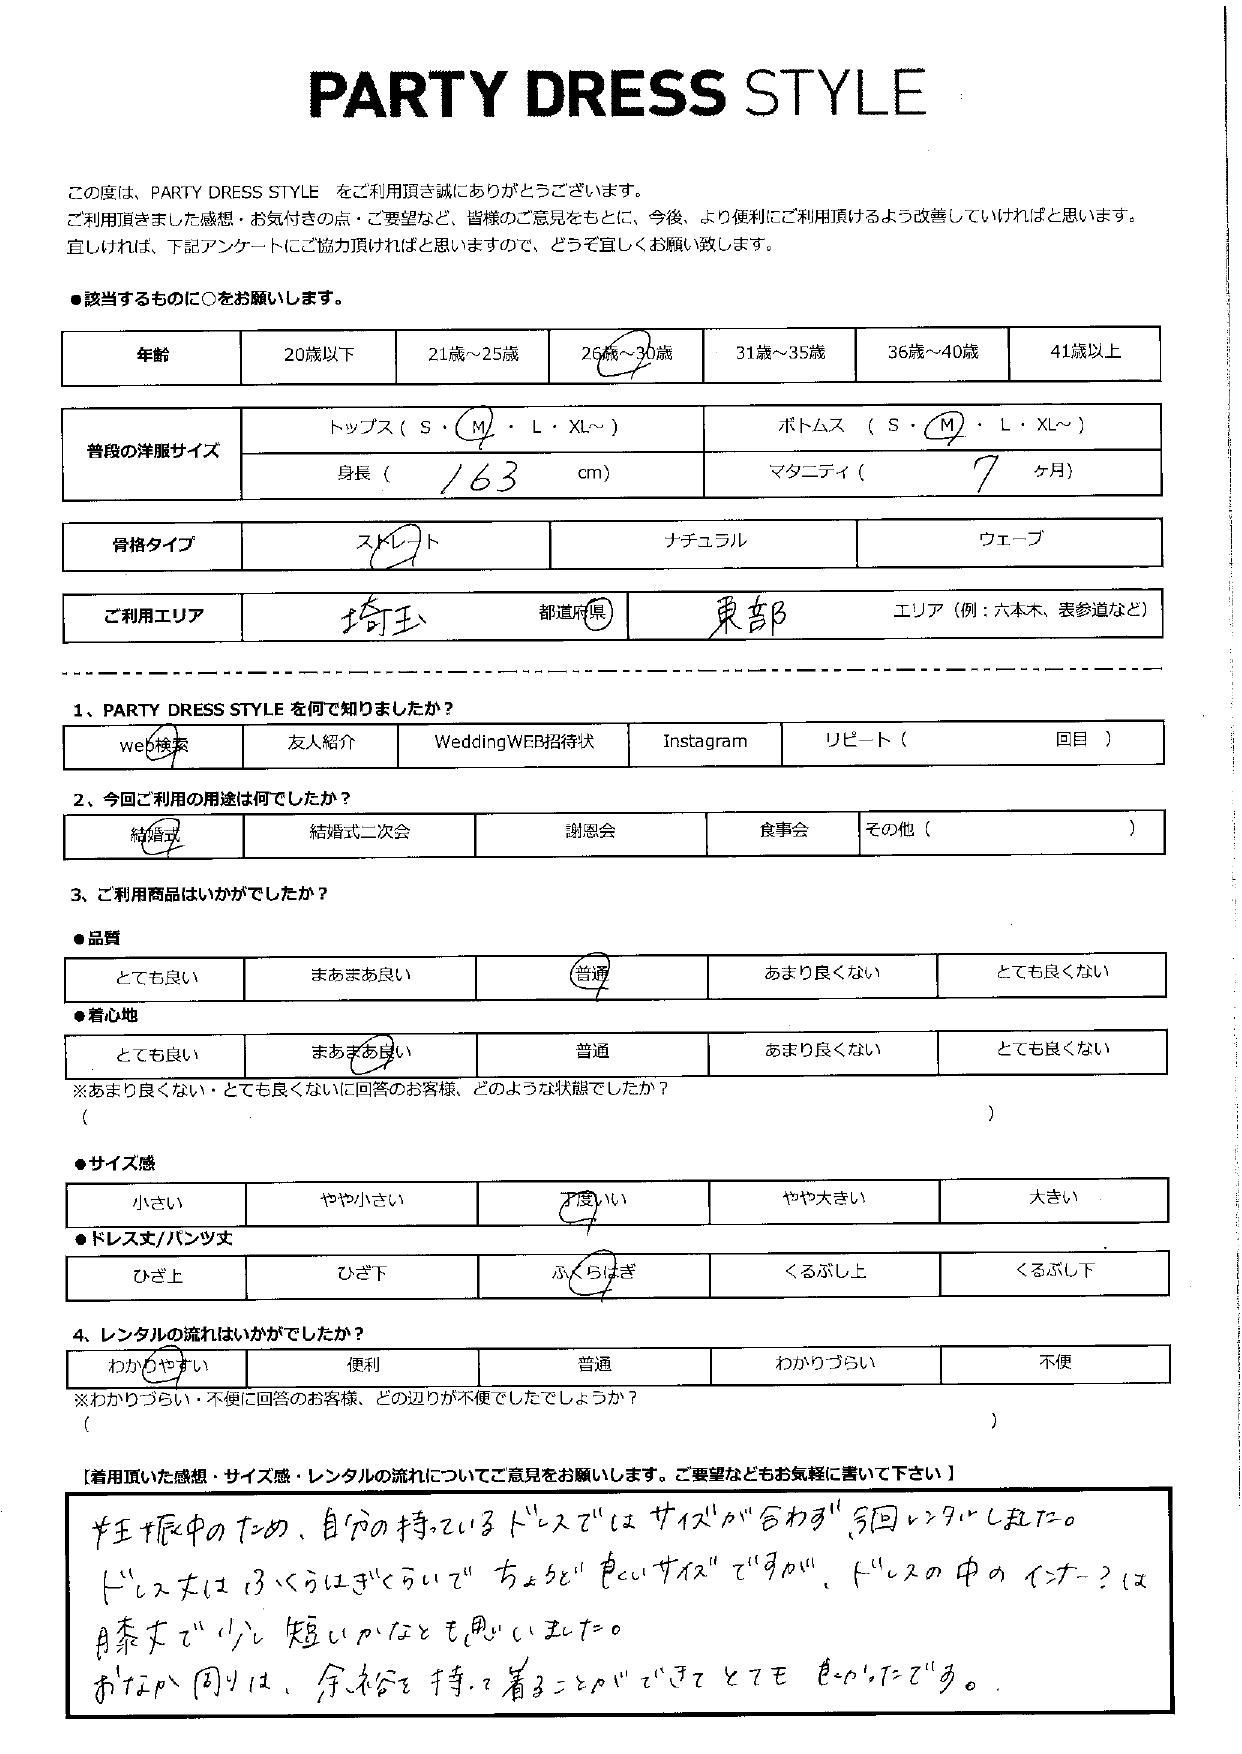 PARTY DRESS STYLE
この度は、PARTY DRESS STYLE をご利用頂き誠にありがとうございます。
ご利用頂きました感想・お気付きの点・ご要望など、皆様のご意見をもとに、今後、より便利にご利用頂けるよう改善していければと思います。
宜しければ、下記アンケートにご協力頂ければと思いますので、どうぞ宜しくお願い致します。
●該当するものに○をお願いします。
年齢 20歳以下 21歳～25歳 26歳～30歳 31歳～35歳 36歳～40歳 41歳以上
普段の洋服サイズ トップス ( S ・ M ・ L ・ XL～ ) ボトムス ( S ・ M ・ L ・ XL～ )
身長 ( 163 cm) マタニティ ( 7 ヶ月)
骨格タイプ ストレート ナチュラル ウェーブ
ご利用エリア 埼玉 都道府県 東部 エリア（例：六本木、表参道など）
1、PARTY DRESS STYLE を何で知りましたか？
web検索 友人紹介 WeddingWEB招待状 Instagram リピート ( 回目 )
2、今回ご利用の用途は何でしたか？
結婚式 結婚式二次会 謝恩会 食事会 その他 ( )
3、ご利用商品はいかがでしたか？
●品質
とても良い まあまあ良い 普通 あまり良くない とても良くない
●着心地
とても良い まあまあ良い 普通 あまり良くない とても良くない
※あまり良くない・とても良くないに回答のお客様、どのような状態でしたか？
( )
●サイズ感
小さい やや小さい 丁度いい やや大きい 大きい
●ドレス丈/パンツ丈
ひざ上 ひざ下 ふくらはぎ くるぶし上 くるぶし下
4、レンタルの流れはいかがでしたか？
わかりやすい 便利 普通 わかりづらい 不便
※わかりづらい・不便に回答のお客様、どの辺りが不便でしたでしょうか？
( )
【着用頂いた感想・サイズ感・レンタルの流れについてご意見をお願いします。ご要望などもお気軽に書いて下さい】
妊娠中のため、自分の持っているドレスではサイズが合わず今回レンタルしました。
ドレス丈はふくらはぎくらいでちょうど良いサイズですが、ドレスの中のインナー？は
膝丈で少し短いかなとも思いました。
おなか周りは、余裕を持って着ることができてとても良かったです。